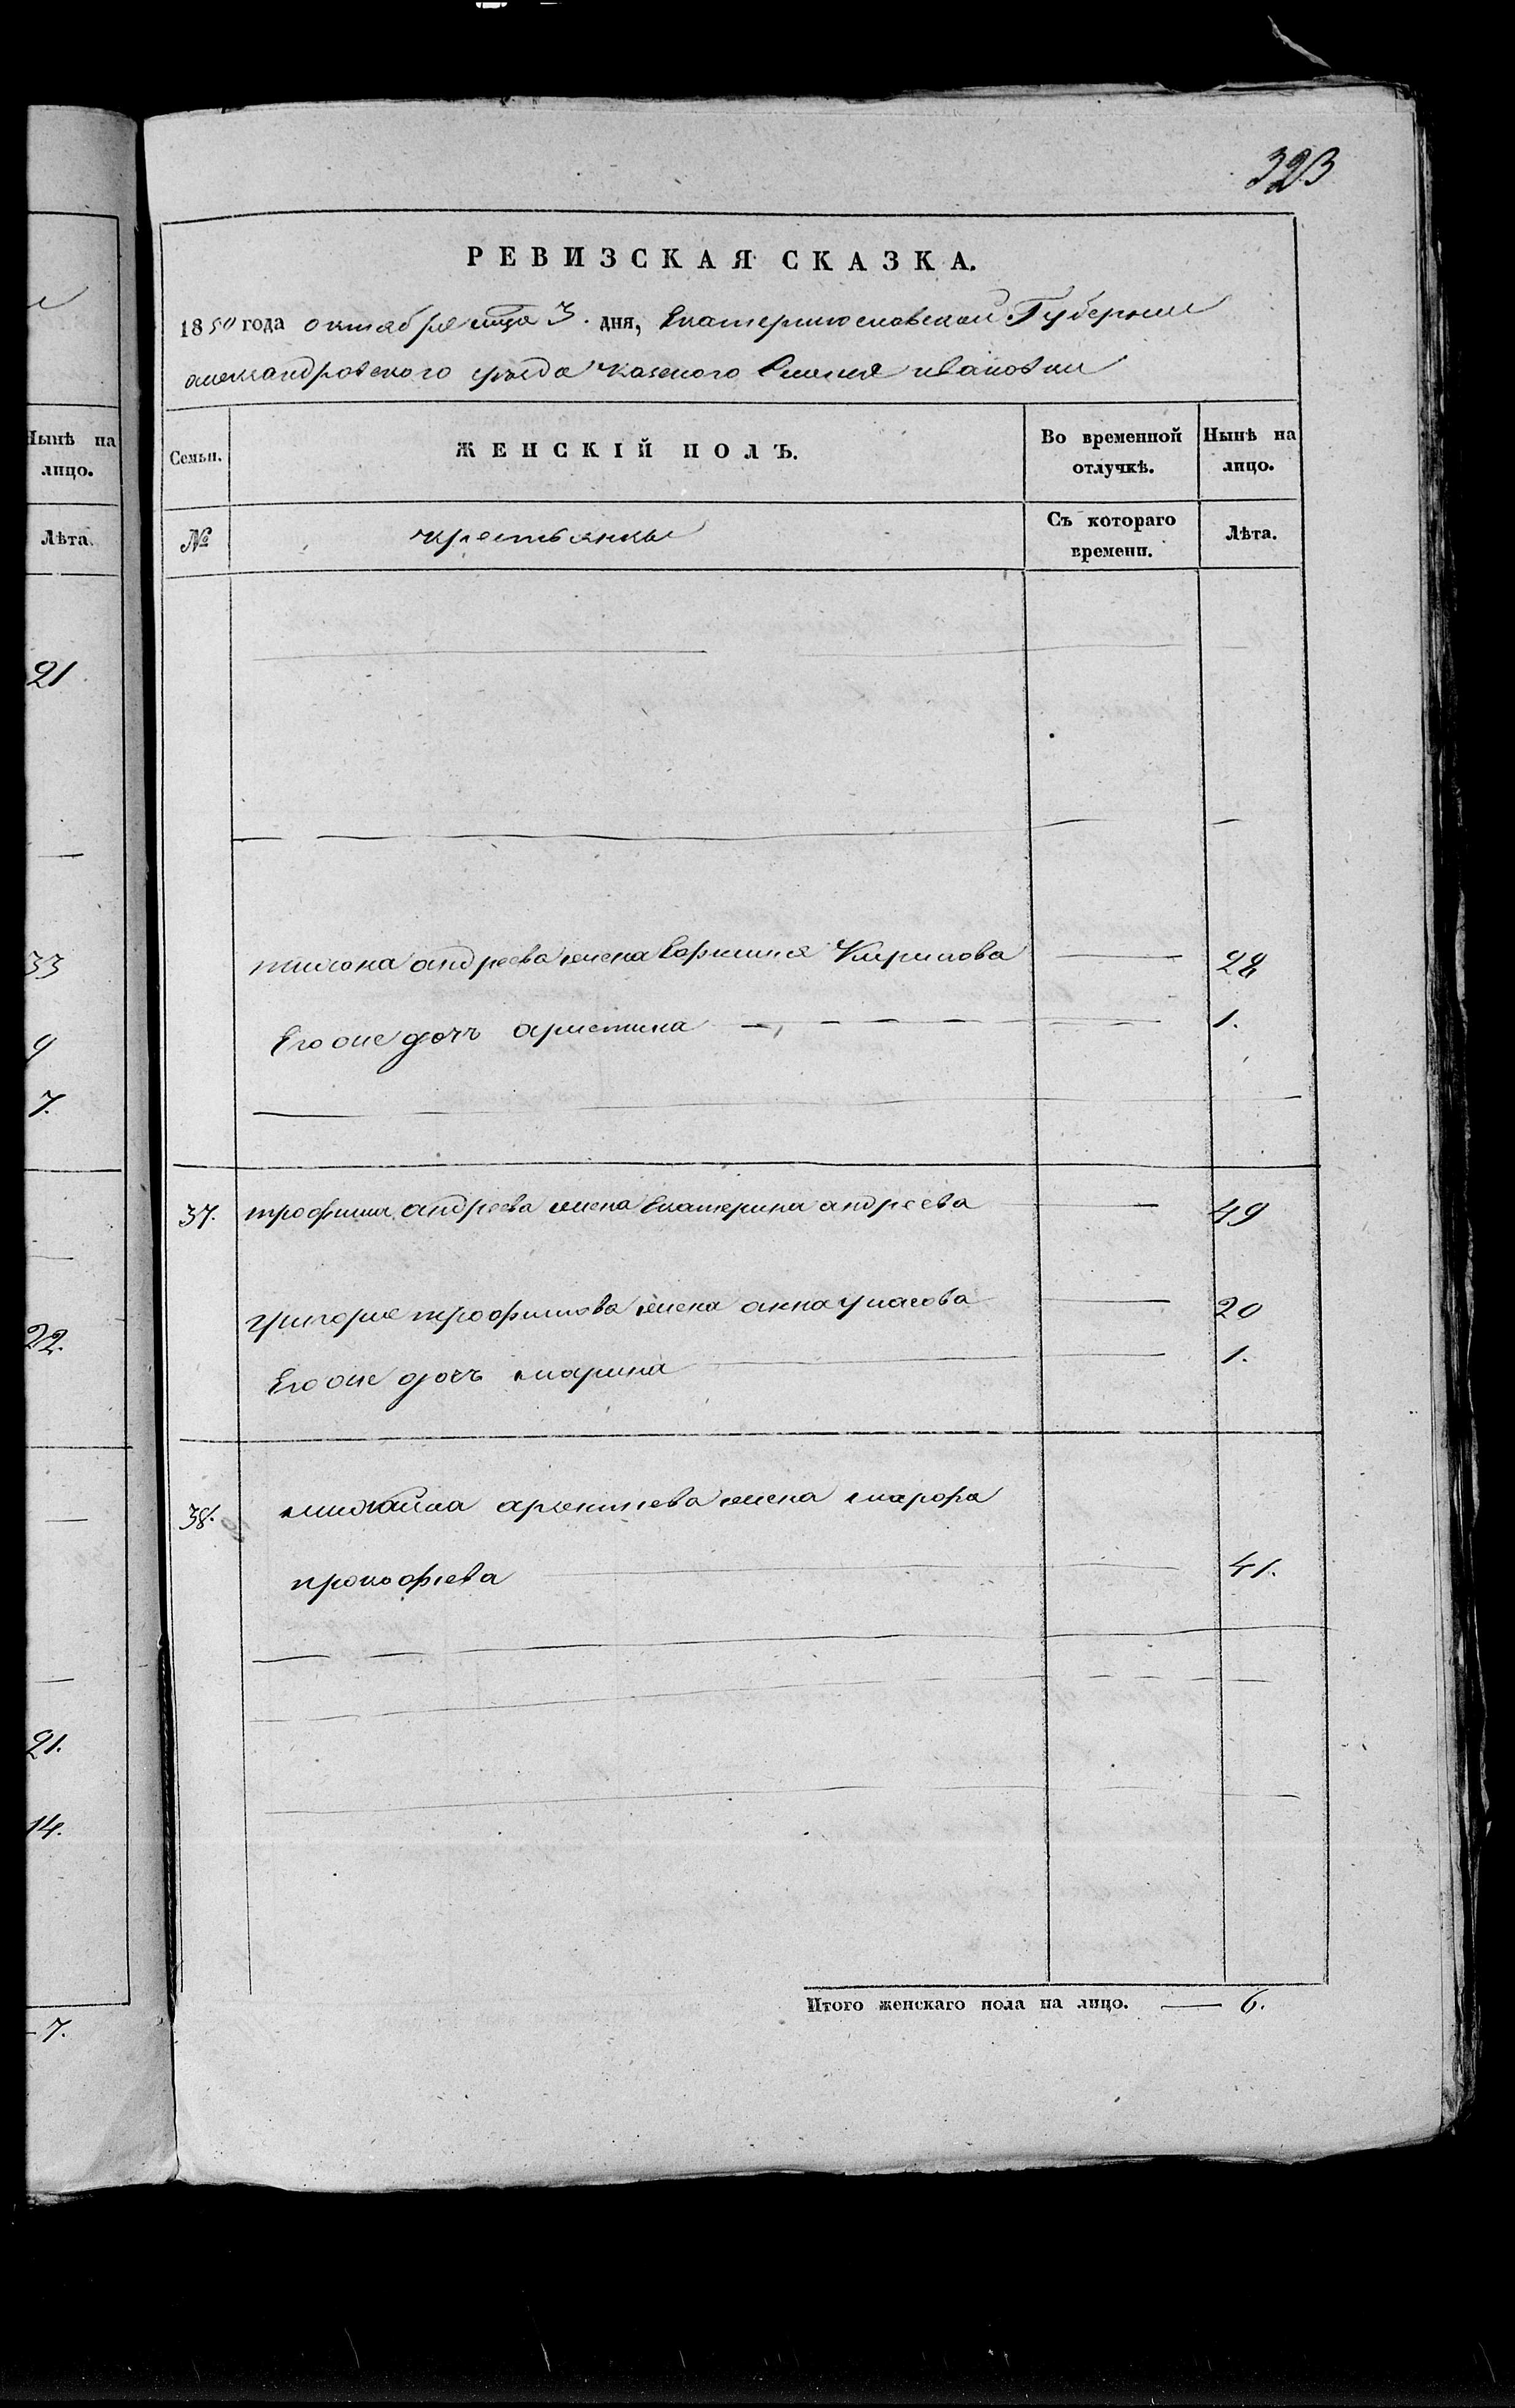 323
РЕВИЗСКАЯ СКАЗКА.
1850 года октября мца 3. дня, Екатеринославской Губернии
александровского уезда казеного Селения ивановки
Нынѣ на лицо.
Семьи. ЖЕНСКІЙ ПОЛЪ. Во временной отлучкѣ. Нынѣ на лицо.
Лѣта.
№ крестьянки Съ котораго времени. Лѣта.
21
33
тихона андреева жена Кирилова — 28
9
Его же дочь аристина — 1.
7.
37. трофима андреева жена Екатерина андреева — 49
22.
григория трофимова жена анна — 20
Его же дочь марина — 1.
38. михайла жена марфа
прокофьева — 41.
21.
14.
Итого женскаго пола на лицо. — 6.
7.